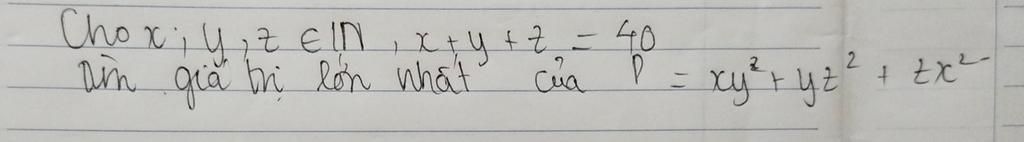 Cho x; y, z ∈ ℕ, x + y + z = 40
Tìm giá trị lớn nhất của P = xy² + yz² + zx²